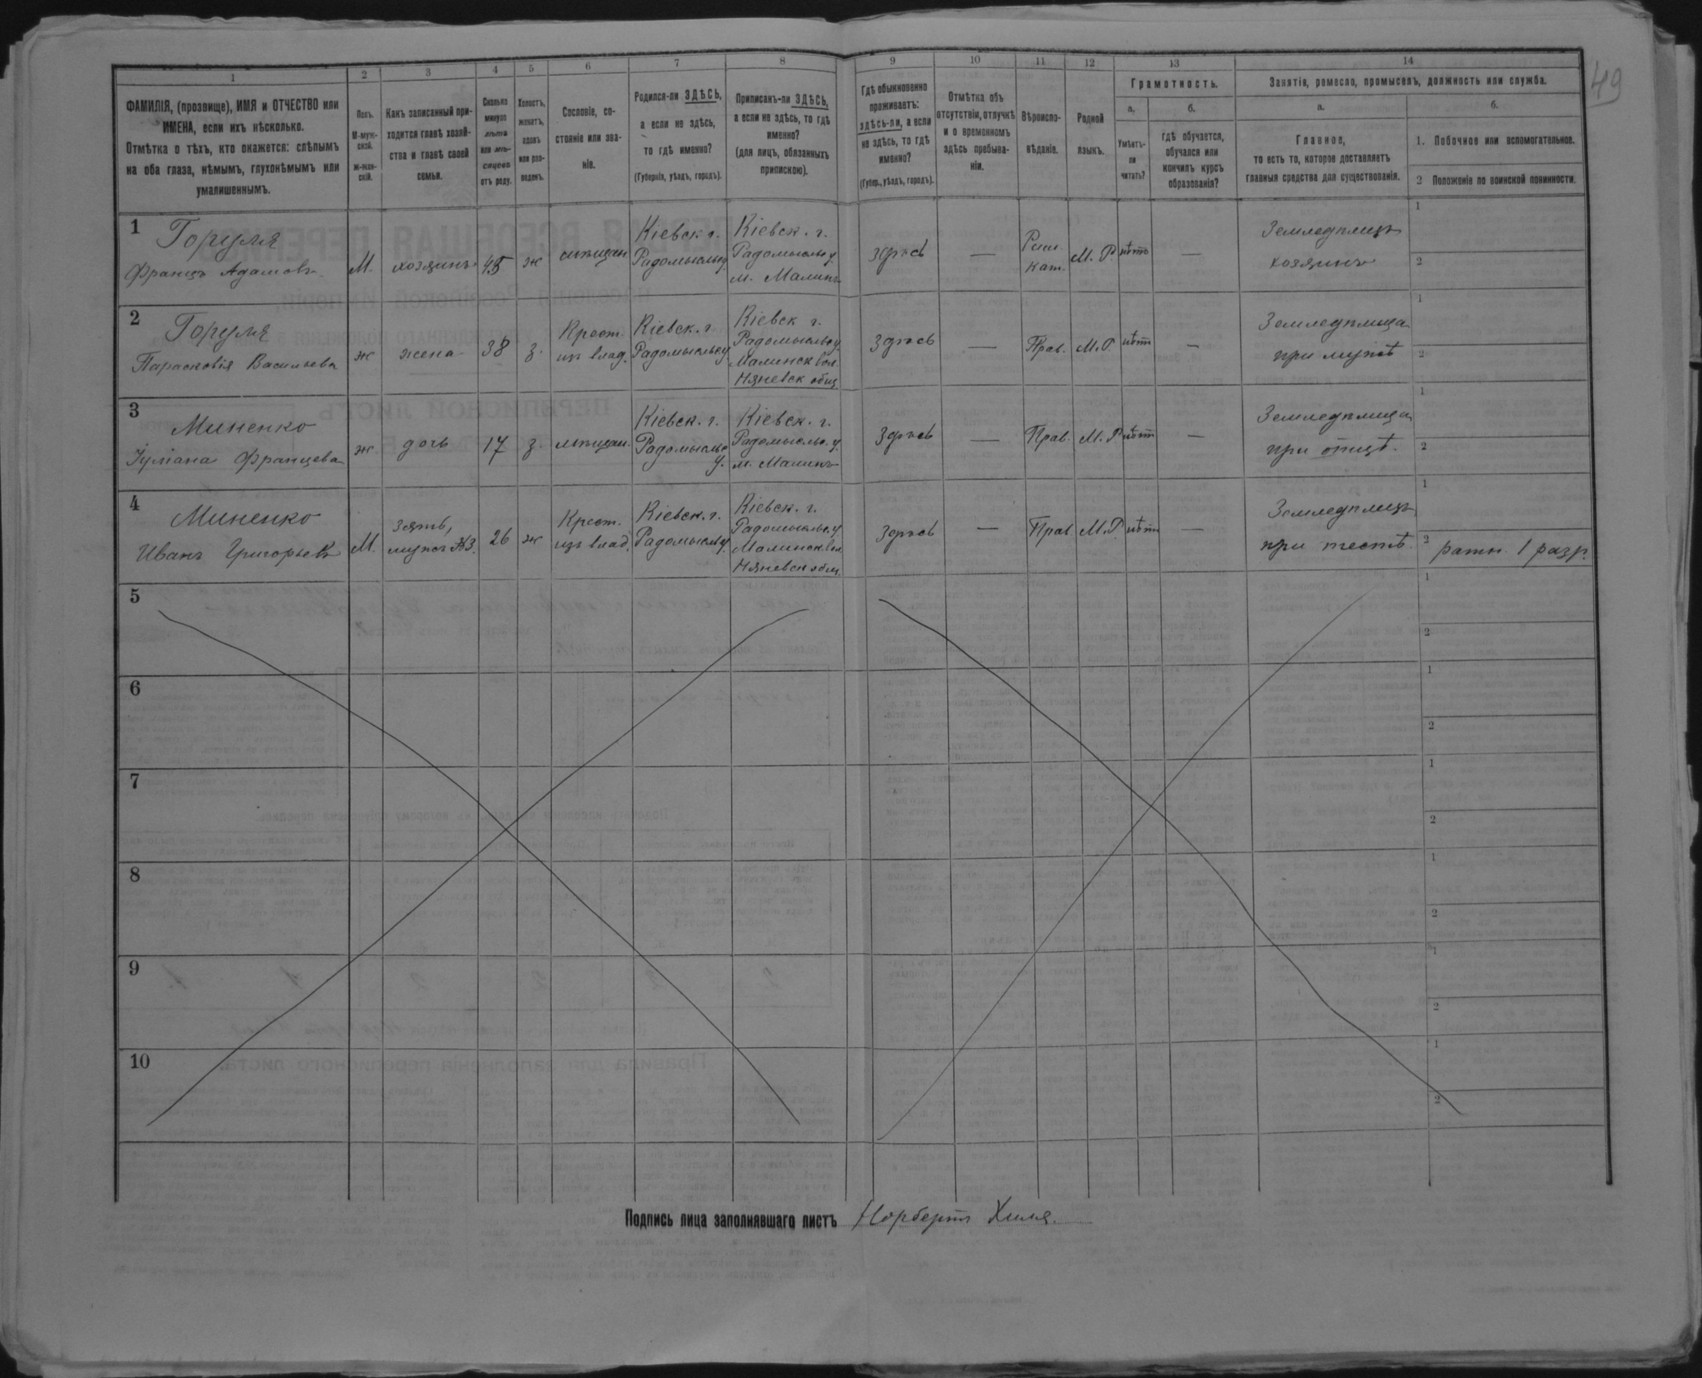 49
1 2 3 4 5 6 7 8 9 10 11 12 13 14
ФАМИЛІЯ, (прозвище), ИМЯ и ОТЧЕСТВО или
ИМЕНА, если ихъ нѣсколько.
Отмѣтка о тѣхъ, кто окажется: слѣпымъ
на оба глаза, нѣмымъ, глухонѣмымъ или
умалишеннымъ.
Полъ.
М-муж-
ской.
Ж-жен-
скій.
Какъ записанный при-
ходится главѣ хозяй-
ства и главѣ своей
семьи.
Сколько
минуло
лѣтъ
или мѣ-
сяцевъ
отъ роду.
Холостъ,
женатъ,
вдовъ
или раз-
веденъ.
Сословіе, со-
стояніе или зва-
ніе.
Родился-ли ЗДѢСЬ,
а если не здѣсь,
то гдѣ именно?
(Губернія, уѣздъ, городъ).
Приписанъ-ли ЗДѢСЬ,
а если не здѣсь, то гдѣ
именно?
(для лицъ, обязанныхъ
припискою).
Гдѣ обыкновенно
проживаетъ:
здѣсь-ли, а если
не здѣсь, то гдѣ
именно?
(Губер., уѣздъ, городъ).
Отмѣтка объ
отсутствіи, отлучкѣ
и о временномъ
здѣсь пребыва-
ніи.
Вѣроиспо-
вѣданіе.
Родной
языкъ.
Грамотность.
а.
Умѣетъ-
ли
читать?
б.
гдѣ обучается,
обучался или
кончилъ курсъ
образованія?
Занятія, ремесло, промыселъ, должность или служба.
а.
Главное,
то есть то, которое доставляетъ
главныя средства для существованія.
б.
1. Побочное или вспомогательное.
2 Положеніе по воинской повинности.
1
Горуля
Францъ Адамовъ
М.
хозяинъ
45
ж
мѣщан
Кіевск г.
Радомысльу
Кіевск. г.
Радомысльу
м. Малинъ
здѣсь
—
Рим.
кат.
М. Р.
нѣтъ
—
Земледѣлецъ
хозяинъ
1
2
2
Горуля
Парасковія Васильева
ж
жена
38
з.
Крест.
изъ влад.
Кіевск. г.
Радомысльу
Кіевск г.
Радомысльу
Малинск вол.
Няневск общ.
здѣсь
—
Прав.
М.Р
нѣтъ
—
Земледѣлица
при мужѣ
1
2
3
Миненко
Іуліана Францева
ж
дочь
17
з.
мѣщан.
Кіевск. г.
Радомысльс
у.
Кіевск. г.
Радомысльс. у.
м. Малинъ
здѣсь
—
Прав.
М. Р
нѣтъ
—
Земледѣлица
при отцѣ.
1
2
4
Миненко
Иванъ Григорьев
М.
Зять,
мужъ №3.
26
ж
Крест.
изъ влад.
Кіевск. г.
Радомысльу.
Кіевск. г.
Радомысльс.у
Малинск.вол
Няневск общ.
здѣсь
—
Прав
М.Р.
нѣтъ
—
Земледѣлецъ
при тестѣ
1
2 ратн. 1 разр.
5
1
2
6
1
2
7
1
2
8
1
2
9
1
2
10
1
2
Подпись лица заполнявшаго листъ Норбертъ Хиля.